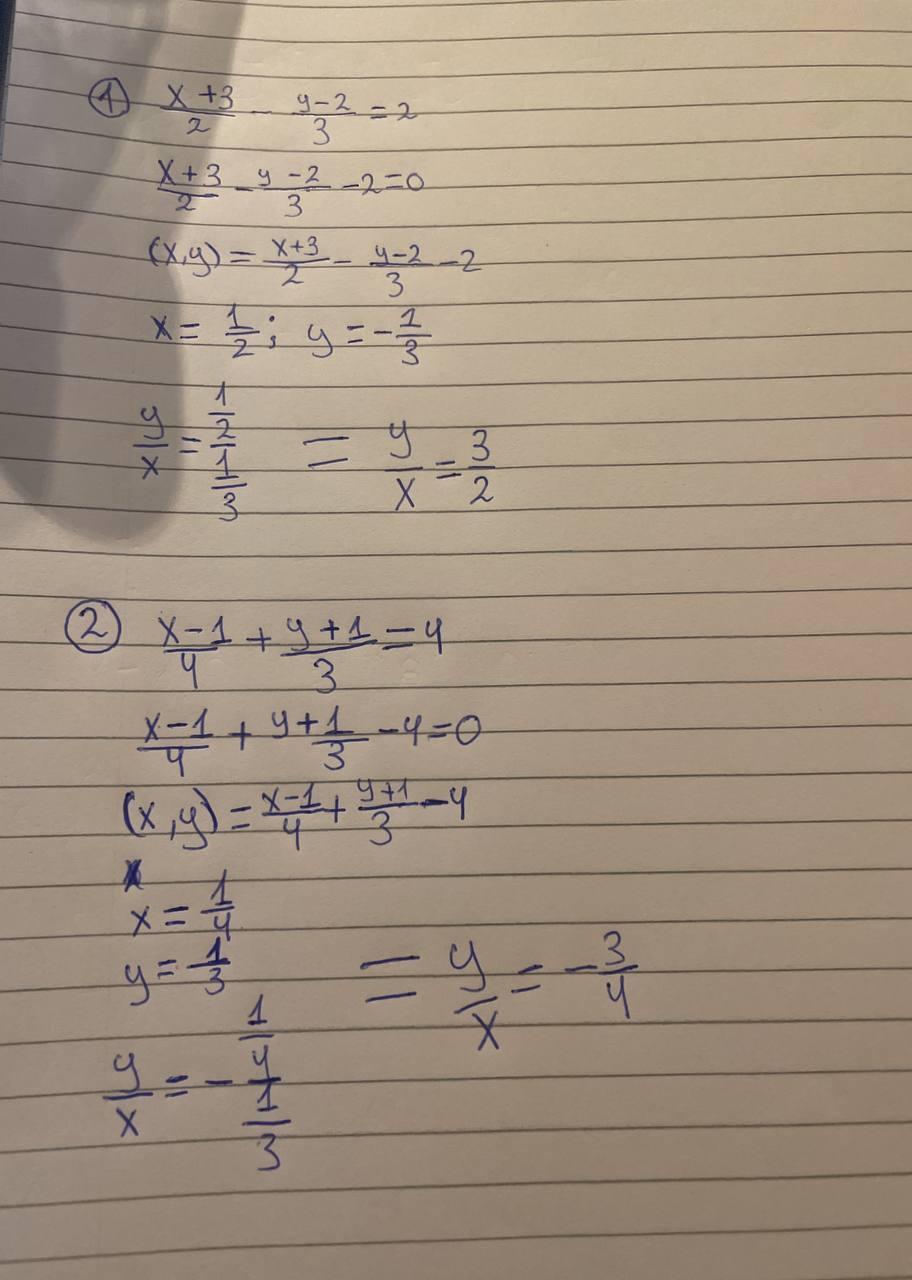 ① x+3/2 - y-2/3 = 2
x+3/2 - y-2/3 - 2 = 0
(x,y) = x+3/2 - y-2/3 - 2
x = 1/2 ; y = -1/3
y/x = 1/2 / 1/3 = y/x = 3/2
② x-1/4 + y+1/3 = 4
x-1/4 + y+1/3 - 4 = 0
(x,y) = x-1/4 + y+1/3 - 4
x = 1/4
y = 1/3
y/x = - 1/4 / 1/3 = y/x = - 3/4